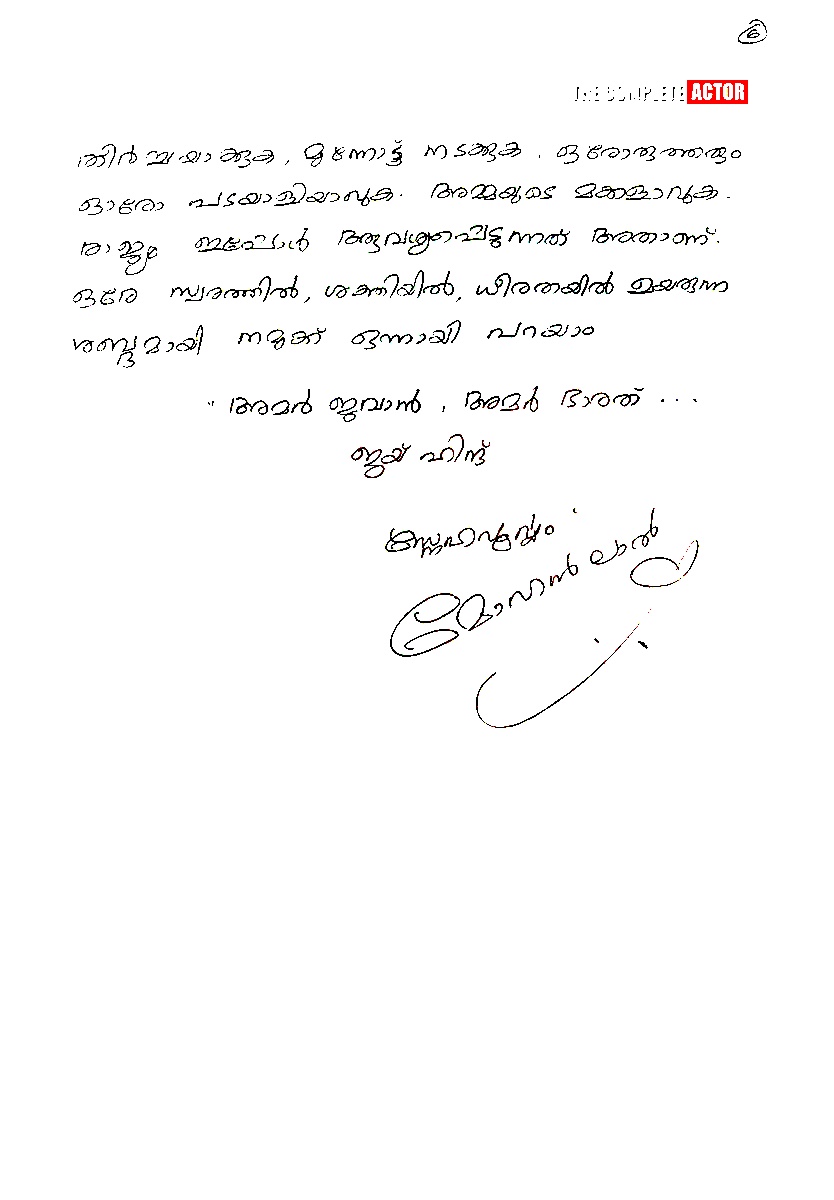 6
THE COMPLETE ACTOR
തീർച്ചയാക്കുക, മുന്നോട്ട് നടക്കുക. ഒരോരുത്തരും
ഓരോ പടയാളിയാവുക. അമ്മയുടെ മക്കളാവുക.
രാജ്യം ഇപ്പോൾ ആവശ്യപ്പെടുന്നത് അതാണ്.
ഒരേ സ്വരത്തിൽ, ശക്തിയിൽ, ധീരതയിൽ ഉയരുന്ന
ശബ്ദമായി നമുക്ക് ഒന്നായി പറയാം
"അമർ ജവാൻ, അമർ ഭാരത് ...
ജയ് ഹിന്ദ്
സ്നേഹപൂർവ്വം
മോഹൻലാൽ